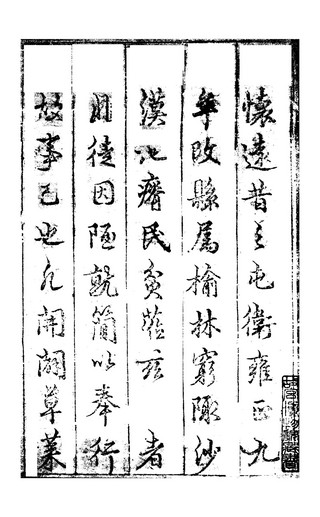 懷遠昔之屯衛雍正九
年改縣屬榆林窮陬沙
漠地瘠民貧蒞玆者
因陋就簡以奉行
故事已也凡開闢草萊